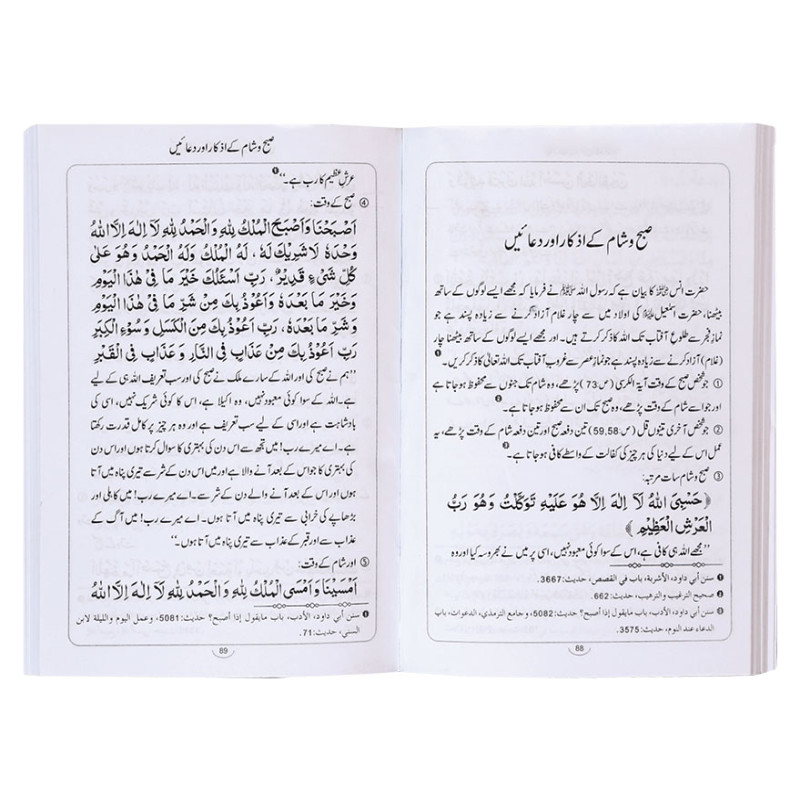 صبح و شام کے اذکار اور دعائیں
حضرت انس رضی اللہ عنہ کا بیان ہے کہ رسول اللہ ﷺ نے فرمایا کہ مجھے ایسے لوگوں کے ساتھ
بیٹھنا، حضرت اسمٰعیل علیہ السلام کی اولاد میں سے چار غلام آزاد کرنے سے زیادہ پسند ہے جو
نمازِ فجر سے طلوع آفتاب تک اللہ کا ذکر کرتے ہیں۔ اور مجھے ایسے لوگوں کے ساتھ بیٹھنا چار
(غلام) آزاد کرنے سے زیادہ پسند ہے جو نماز عصر سے غروب آفتاب تک اللہ تعالیٰ کا ذکر کریں۔ ❶
① جو شخص صبح کے وقت آیۃ الکرسی (ص 73) پڑھے، وہ شام تک جنوں سے محفوظ ہو جاتا ہے
اور جو اسے شام کے وقت پڑھے، وہ صبح تک ان سے محفوظ ہو جاتا ہے۔ ❷
② جو شخص آخری تینوں قل (ص: 59,58) تین دفعہ صبح اور تین دفعہ شام کے وقت پڑھے، یہ
عمل اس کے لیے دنیا کی ہر چیز کی کفالت کے واسطے کافی ہو جاتا ہے۔ ❸
③ صبح و شام سات مرتبہ:
﴿حَسْبِيَ اللّٰهُ لَآ اِلٰهَ اِلَّا هُوَ عَلَيْهِ تَوَكَّلْتُ وَهُوَ رَبُّ
الْعَرْشِ الْعَظِيْمِ﴾
’’مجھے اللہ ہی کافی ہے، اس کے سوا کوئی معبود نہیں، اسی پر میں نے بھروسہ کیا اور وہ
❶ سنن أبي داود، الأشربة، باب في القصص، حدیث: 3667.
❷ صحیح الترغیب والترهیب، حدیث: 662.
❸ سنن أبي داود، الأدب، باب مایقول إذا أصبح؟ حدیث: 5082، و جامع الترمذي، الدعوات، باب
الدعاء عند النوم، حدیث: 3575.
88
صبح و شام کے اذکار اور دعائیں
عرشِ عظیم کا رب ہے۔‘‘ ❶
④ صبح کے وقت:
اَصْبَحْنَا وَاَصْبَحَ الْمُلْكُ لِلّٰهِ وَالْحَمْدُ لِلّٰهِ لَآ اِلٰهَ اِلَّا اللّٰهُ
وَحْدَهٗ لَا شَرِيْكَ لَهٗ، لَهُ الْمُلْكُ وَلَهُ الْحَمْدُ وَهُوَ عَلٰى
كُلِّ شَيْءٍ قَدِيْرٌ، رَبِّ اَسْئَلُكَ خَيْرَ مَا فِيْ هٰذَا الْيَوْمِ
وَخَيْرَ مَا بَعْدَهٗ وَاَعُوْذُ بِكَ مِنْ شَرِّ مَا فِيْ هٰذَا الْيَوْمِ
وَشَرِّ مَا بَعْدَهٗ، رَبِّ اَعُوْذُ بِكَ مِنَ الْكَسَلِ وَسُوْءِ الْكِبَرِ
رَبِّ اَعُوْذُ بِكَ مِنْ عَذَابٍ فِي النَّارِ وَعَذَابٍ فِي الْقَبْرِ
’’ہم نے صبح کی اور اللہ کے سارے ملک نے صبح کی اور سب تعریف اللہ ہی کے لیے
ہے۔ اللہ کے سوا کوئی معبود نہیں، وہ اکیلا ہے، اس کا کوئی شریک نہیں، اسی کی
بادشاہت ہے اور اسی کے لیے سب تعریف ہے اور وہ ہر چیز پر کامل قدرت رکھتا
ہے۔ اے میرے رب! میں تجھ سے اس دن کی بہتری کا سوال کرتا ہوں اور اس دن
کی بہتری کا جو اس کے بعد آنے والا ہے اور میں اس دن کے شر سے تیری پناہ میں آتا
ہوں اور اس کے بعد آنے والے دن کے شر سے۔ اے میرے رب! میں کاہلی اور
بڑھاپے کی خرابی سے تیری پناہ میں آتا ہوں۔ اے میرے رب! میں آگ کے
عذاب سے اور قبر کے عذاب سے تیری پناہ میں آتا ہوں۔‘‘
⑤ اور شام کے وقت:
اَمْسَيْنَا وَاَمْسَى الْمُلْكُ لِلّٰهِ وَالْحَمْدُ لِلّٰهِ لَآ اِلٰهَ اِلَّا اللّٰهُ
❶ سنن أبي داود، الأدب، باب مایقول إذا أصبح؟ حدیث: 5081، وعمل الیوم واللیلة لابن
السني، حدیث: 71.
89